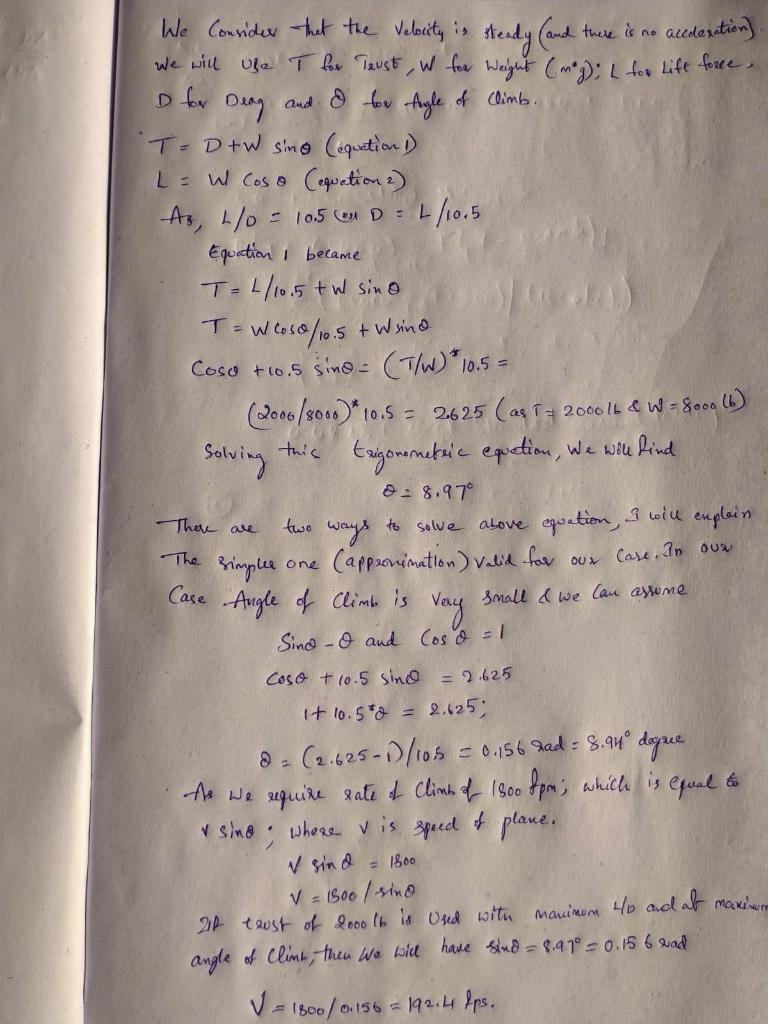 We Consider that the Velocity is steady (and there is no acceleration).
we will use T for Trust, W for Weight (m*g); L for Lift force,
D for Drag and θ for Angle of Climb.
T = D + W sinθ (equation 1)
L = W Cosθ (equation 2)
As, L/D = 10.5 (or D = L/10.5
Equation 1 became
T = L/10.5 + W sinθ
T = W cosθ/10.5 + W sinθ
Cosθ + 10.5 sinθ = (T/W)*10.5 =
(2000/8000)*10.5 = 2.625 (as T = 2000 lb & W = 8000 lb)
Solving this trigonometric equation, We will find
θ = 8.97°
There are two ways to solve above equation, I will explain
The simpler one (approximation) valid for our case. In our
Case Angle of Climb is very small & we can assume
Sinθ - θ and Cosθ = 1
Cosθ + 10.5 sinθ = 2.625
1 + 10.5*θ = 2.625;
θ = (2.625-1)/10.5 = 0.156 rad = 8.94° degree
As we require rate of Climb of 1800 fpm; which is equal to
v sinθ; where v is speed of plane.
V sinθ = 1800
V = 1800/sinθ
If trust of 2000 lb is Used with maximum L/D and at maximum
angle of Climb, then we will have sinθ = 8.97° = 0.156 rad
V = 1800/0.156 = 192.4 fps.